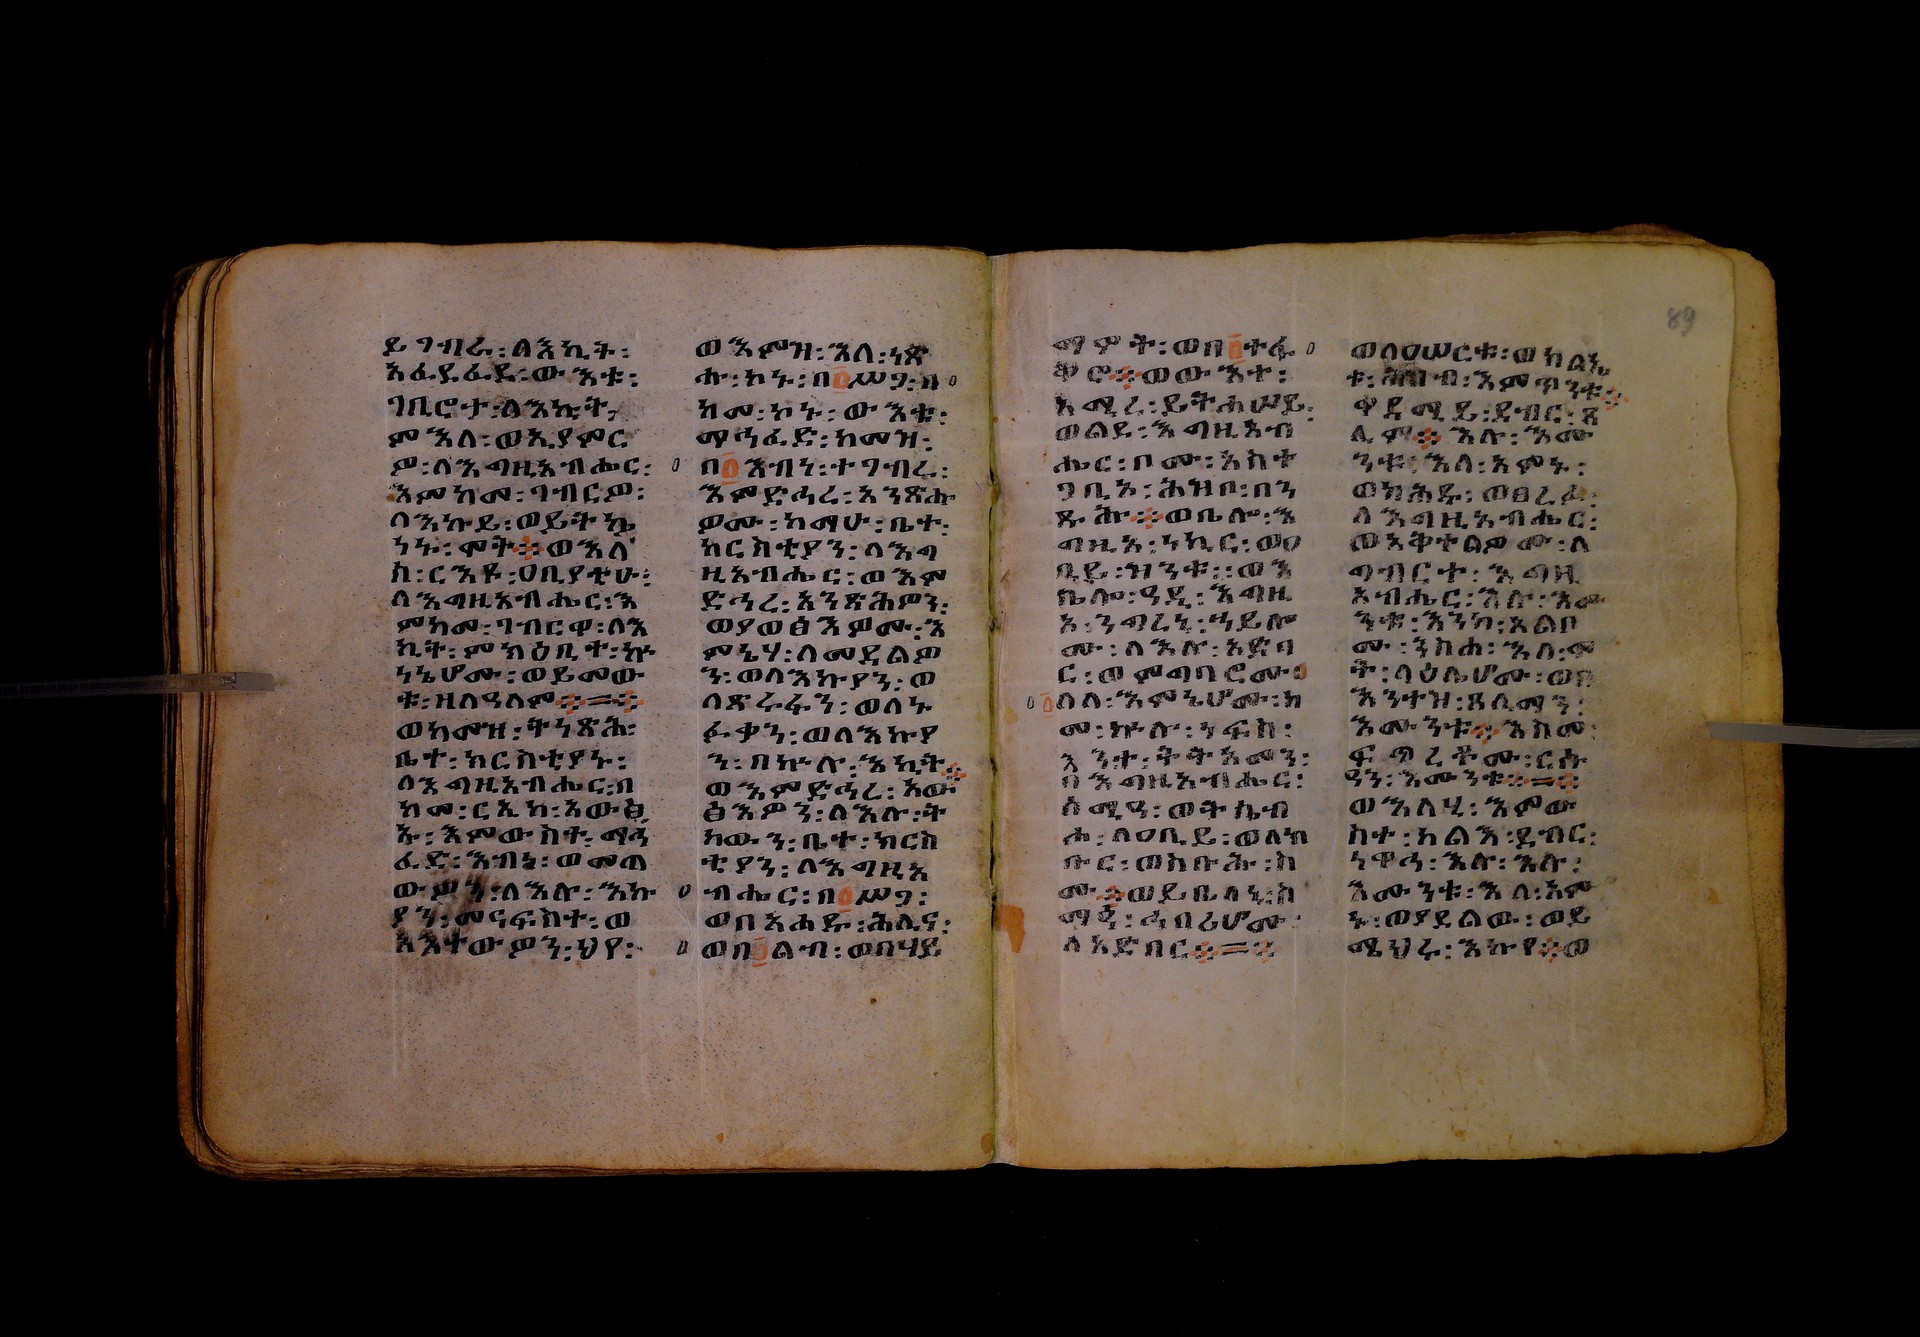 ይገብራ፡ለእኪት፡
አፈድፈደ፡ውእቱ፡
ገቢሮታ፡ለእኪት፡
ምእለ፡ወኢያምር
ዎ፡ለእግዚአብሔር፡
እምከመ፡ገብርዎ፡
ለእኩይ፡ወይትኴ
ነኑ፡ሞት፨ወእለ
ከ፡ርእዩ፡ዐቢያቲሁ፡
ለእግዚአብሔር፡እ
ምከመ፡ገብርዋ፡ለእ
ኪት፡ምክዕቢተ፡ኵ
ነኔሆሙ፡ወይመው
ቱ፡ዘለዓለም፨=፨
ወከመዝ፡ትነጽሕ፡
ቤተ፡ክርስቲያኑ፡
ለእግዚአብሔር፡በ
ከመ፡ርኢከ፡አውፅ
ኡ፡እምውስተ፡ማኅ
ፈድ፡እብነ፡ወመጠ
ውዎን፡ለእሉ፡እኩ
ያን፡መናፍስተ፡ወ
አእተውዎን፡ህየ፡
ወእምዝ፡እለ፡ነጽ
ሑ፡ኮኑ፡በ፩ሥጋ፡በ
ከመ፡ኮኑ፡ውእቱ፡
ማኅፈድ፡ከመዝ፡
በ፩እብነ፡ተገብረ፡
እምድኅረ፡አንጽሑ
ዎሙ፡ካማሁ፡ቤተ፡
ክርስቲያን፡ለእግ
ዚአብሔር፡ወእም
ድኅረ፡አንጽሕዎን፡
ወያወፅእዎሙ፡እ
ምኔሃ፡ለመደልዎ
ን፡ወለእኩያን፡ወ
ለጽራፋን፡ወለኑ
ፉቃን፡ወለእኩያ
ን፡በኵሉ፡እኪት፨
ወእምድኅረ፡አው
ፅእዎን፡ለእሉ፡ት
ከውን፡ቤተ፡ክርስ
ቲያን፡ለእግዚአ
ብሔር፡በ፩ሥጋ፡
ወበአሐዱ፡ሕሊና፡
ወበ፩ልብ፡ወበሃይ
ማኖት፡ወበ፩ተፋ
ቅሮ፨ወውእተ፡
አሚረ፡ይትሐሠይ፡
ወልደ፡እግዚአብ
ሔር፡በሙ፡አስተ
ጋቢኦ፡ሕዝቦ፡በን
ጹሕ፨ወቤሎ፡እ
ግዚእ፡ነኪር፡ወዐ
ቢይ፡ዝንቱ፡፡ወእ
ቤሎ፡ዓዲ፡እግዚ
እ፡ንግረኒ፡ኃይሎ
ሙ፡ለእሉ፡አድባ
ር፡ወምግባሮሙ፡
ለለ፡፩እምኔሆሙ፡ከ
መ፡ኵሉ፡ነፍስ፡
እንተ፡ትትአመን፡
በእግዚአብሔር፡
ሰሚዓ፡ወትሴብ
ሖ፡ለዐቢይ፡ወለክ
ቡር፡ወስቡሕ፡ስ
ሙ፨ወይቤለኒ፡ስ
ማዕ፡ኅብሪሆሙ፡
ለአድበር፨=፨
ወለዐሠርቱ፡ወክልኤ
ቱ፡ሕዝብ፡እምጥንቱ፨
ቀዳሚይ፡ደብር፡ጸ
ሊም፨እሉ፡እሙ
ንቱ፡እለ፡አምኑ፡
ወክሕዱ፡ወፀረፉ፡
ለእግዚአብሔር፡
ወአቅተልዎሙ፡ለ
ግብርተ፡እግዚ
አብሔር፡እሉ፡እሙ
ንቱ፡እንከ፡አልቦ
ሙ፡ንስሐ፡አላ፡ሞ
ት፡ላዕሌሆሙ፡ወበ
እንተዝ፡ጸሊማን፡
እሙንቱ፨እስመ፡
ፍጥረቶሙ፡ርሱ
ዓን፡እሙንቱ፨=፨
ወእለሂ፡እምው
ስተ፡ካልእ፡ደብር፡
ነዋኅ፡እሉ፡እሉ፡
እሙንቱ፡እለ፡አም
ኑ፡ወያደልው፡ወይ
ሜህሩ፡እኩየ፨ወ
89